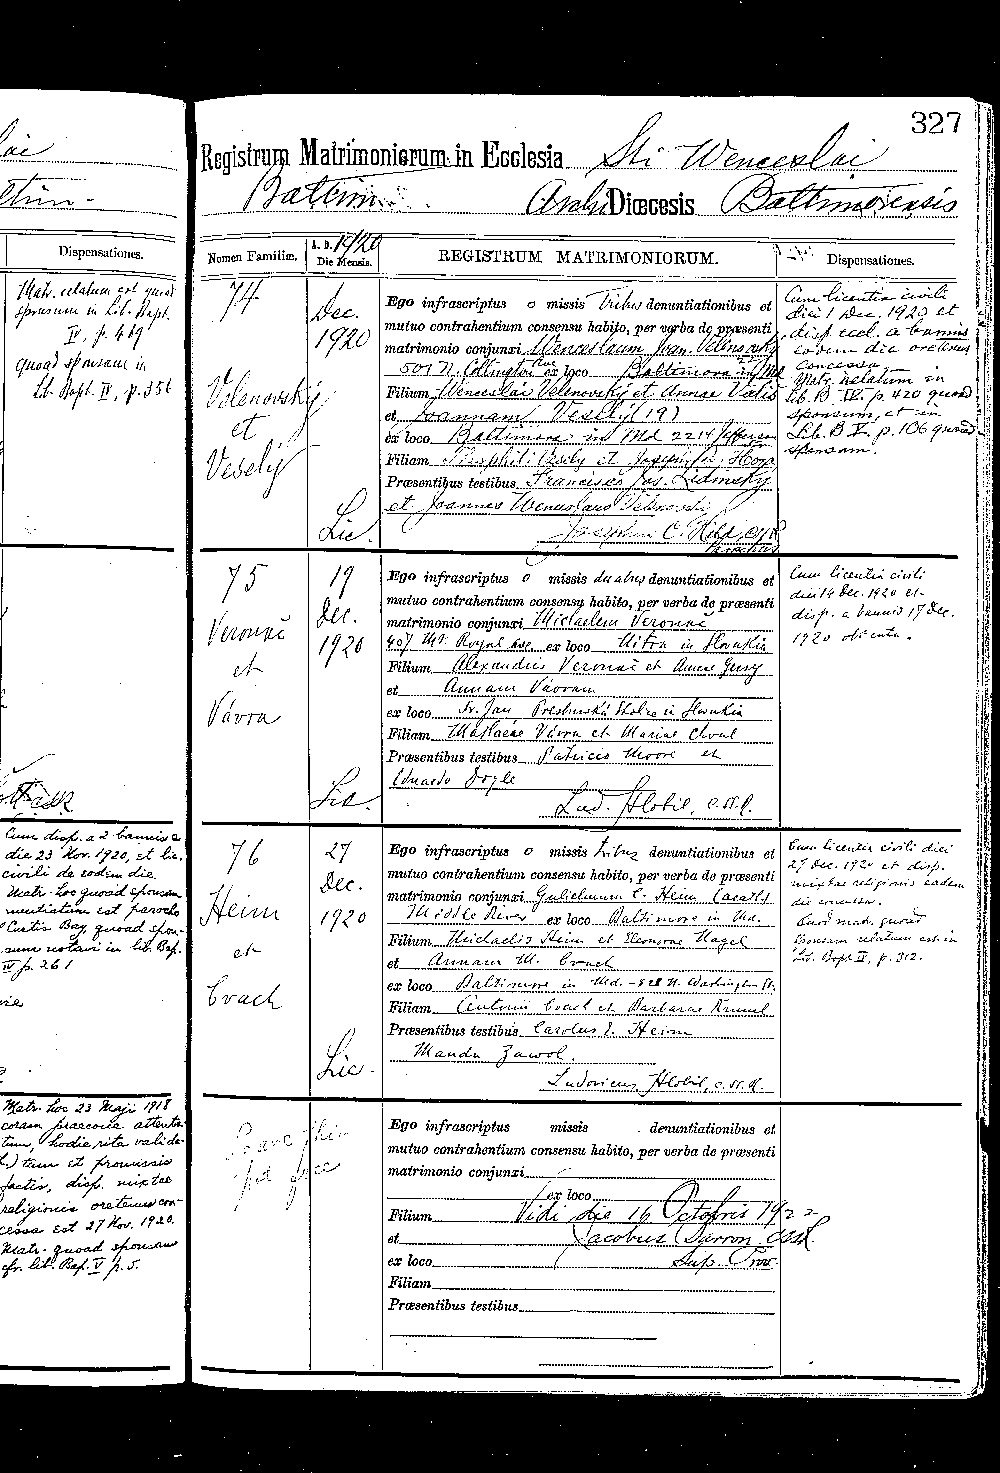 327
Registrum Matrimoniorum in Ecclesia Sti Wenceslai
Baltim. Archi Diœcesis Baltimorensis
Nomen Familiæ.
A. D. 1920
Die Mensis.
REGISTRUM MATRIMONIORUM.
Dispensationes.
74
Velenovský
et
Veselý
Dec.
1920
Lic.
Ego infrascriptus o missis tribus denuntiationibus et
mutuo contrahentium consensu habito, per verba de præsenti
matrimonio conjunxi Wenceslaum Joan. Velenovský
501 N. Collington Ave ex loco Baltimore in Md
Filium Wenceslai Velenovský et Annae
et Joannam Veselý (19)
ex loco Baltimore in Md 2214 Jefferson
Filiam Theophili Vesely et Josephine
Præsentibus testibus Francisco Jos.
et Joannes Wenceslaus
Parochus
Cum licentia civili
diei 1 Dec. 1920 et
disp. eccl. a bannis
eodem die oretenus
concessa.
Matr. relatum in
Lib. B. IV. p. 420 quoad
sponsum, et in
Lib. B V. p. 106 quoad
sponsam.
75
Veronač
et
Vávra
19
Dec.
1920
Lic.
Ego infrascriptus o missis duabus denuntiationibus et
mutuo contrahentium consensu habito, per verba de præsenti
matrimonio conjunxi Michaelem Veronač
407 Mt. Royal Ave. ex loco Nitra in Slovakia
Filium Alexandri Veronač et Annae
et Annam Vávram
ex loco Sv. Jan in Slovakia
Filiam Vávra et Mariae
Præsentibus testibus Patricio Moore et
Eduardo Doyle
Lud. Hlobil, c.ss.r.
Cum licentia civili
diei 14 Dec. 1920 et
disp. a bannis 17 Dec.
1920 obtenta.
76
Heim
et
Cvach
27
Dec.
1920
Lic.
Ego infrascriptus o missis tribus denuntiationibus et
mutuo contrahentium consensu habito, per verba de præsenti
matrimonio conjunxi Gulielmum C. Heim (acath.)
Middle River ex loco Baltimore in Md.
Filium Michaelis Heim et Eleonorae Nagel
et Annam M. Cvach
ex loco Baltimore in Md. - 528 N. Washington St.
Filiam Antonii Cvach et Barbarae
Præsentibus testibus Carolus E. Heim
Zawol.
Ludovicus Hlobil, c.ss.r.
Cum licentia civili diei
27 Dec. 1920 et disp.
mixtae religionis eadem
die concessa.
Quod matr. quoad
sponsam relatum est in
Lib. Bapt. II, p. 312.
Ego infrascriptus missis denuntiationibus et
mutuo contrahentium consensu habito, per verba de præsenti
matrimonio conjunxi
ex loco
Filium Vidi die 16 Octobris 1922
et Jacobus Barron CSSR.
ex loco Sup. Prov
Filiam
Præsentibus testibus
Dispensationes.
Matr. relatum est quoad
sponsum in Lib. Bapt.
IV, p. 449
quoad sponsam in
Lib. Bapt. IV, p. 356
Cum disp. a 2 bannis
die 23 Nov. 1920, et lic.
civili de eodem die.
Matr. hoc quoad sponsam
nuntiatum est parocho
Curtis Bay, quoad spon-
sum notavi in lib. Bap.
IV p. 261
Matr. hoc 23 Maji 1918
coram praecone attenta-
tum, hodie rite valida-
tum et promissis
factis, disp. mixtae
religionis oretenus con-
cessa est 27 Nov. 1920.
Matr. quoad sponsam
cfr. lib. Bap. V p. 5.